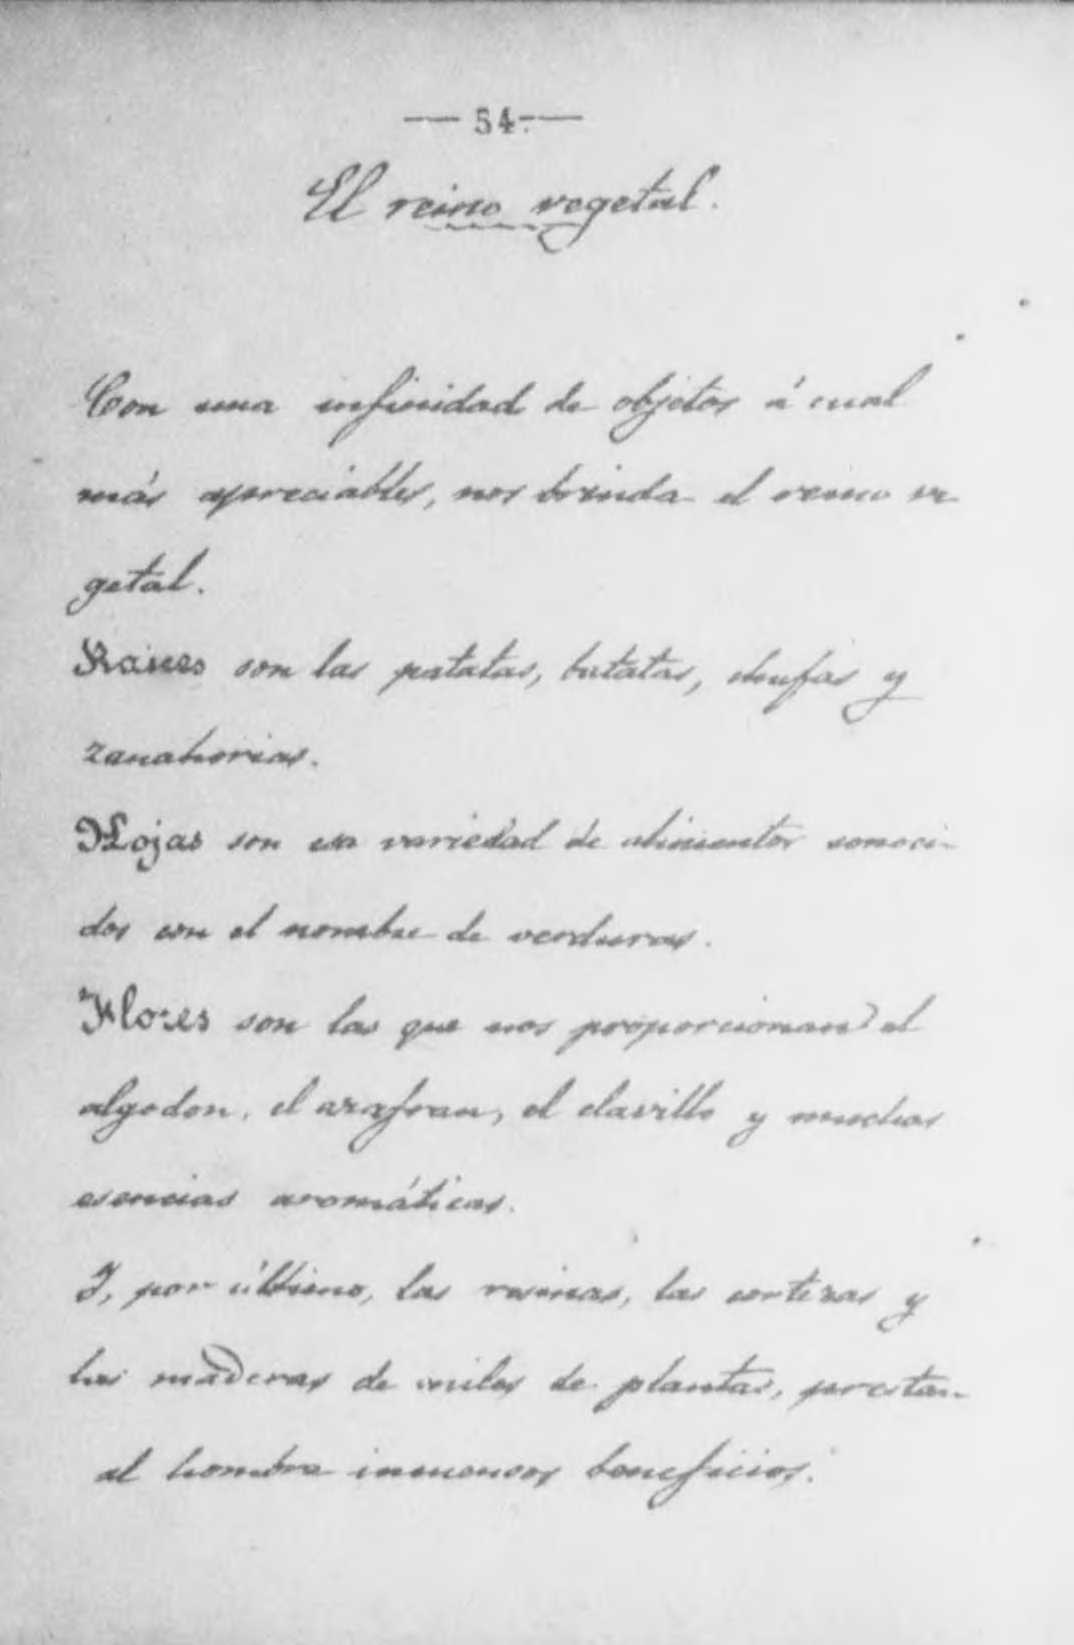 — 54. —
El reino vegetal.
Con una infinidad de objetos á cual
más apreciables, nos brinda el reino ve
getal.
Raices son las patatas, batatas, chufas y
zanahorias.
Hojas son esa variedad de alimentos conoci-
dos con el nombre de verduras.
Flores son las que nos proporcionan el
algodon, el azafran, el clavillo y muchas
esencias aromáticas.
Y, por último, las resinas, las cortezas y
las maderas de miles de plantas, prestan
al hombre inmensos beneficios.